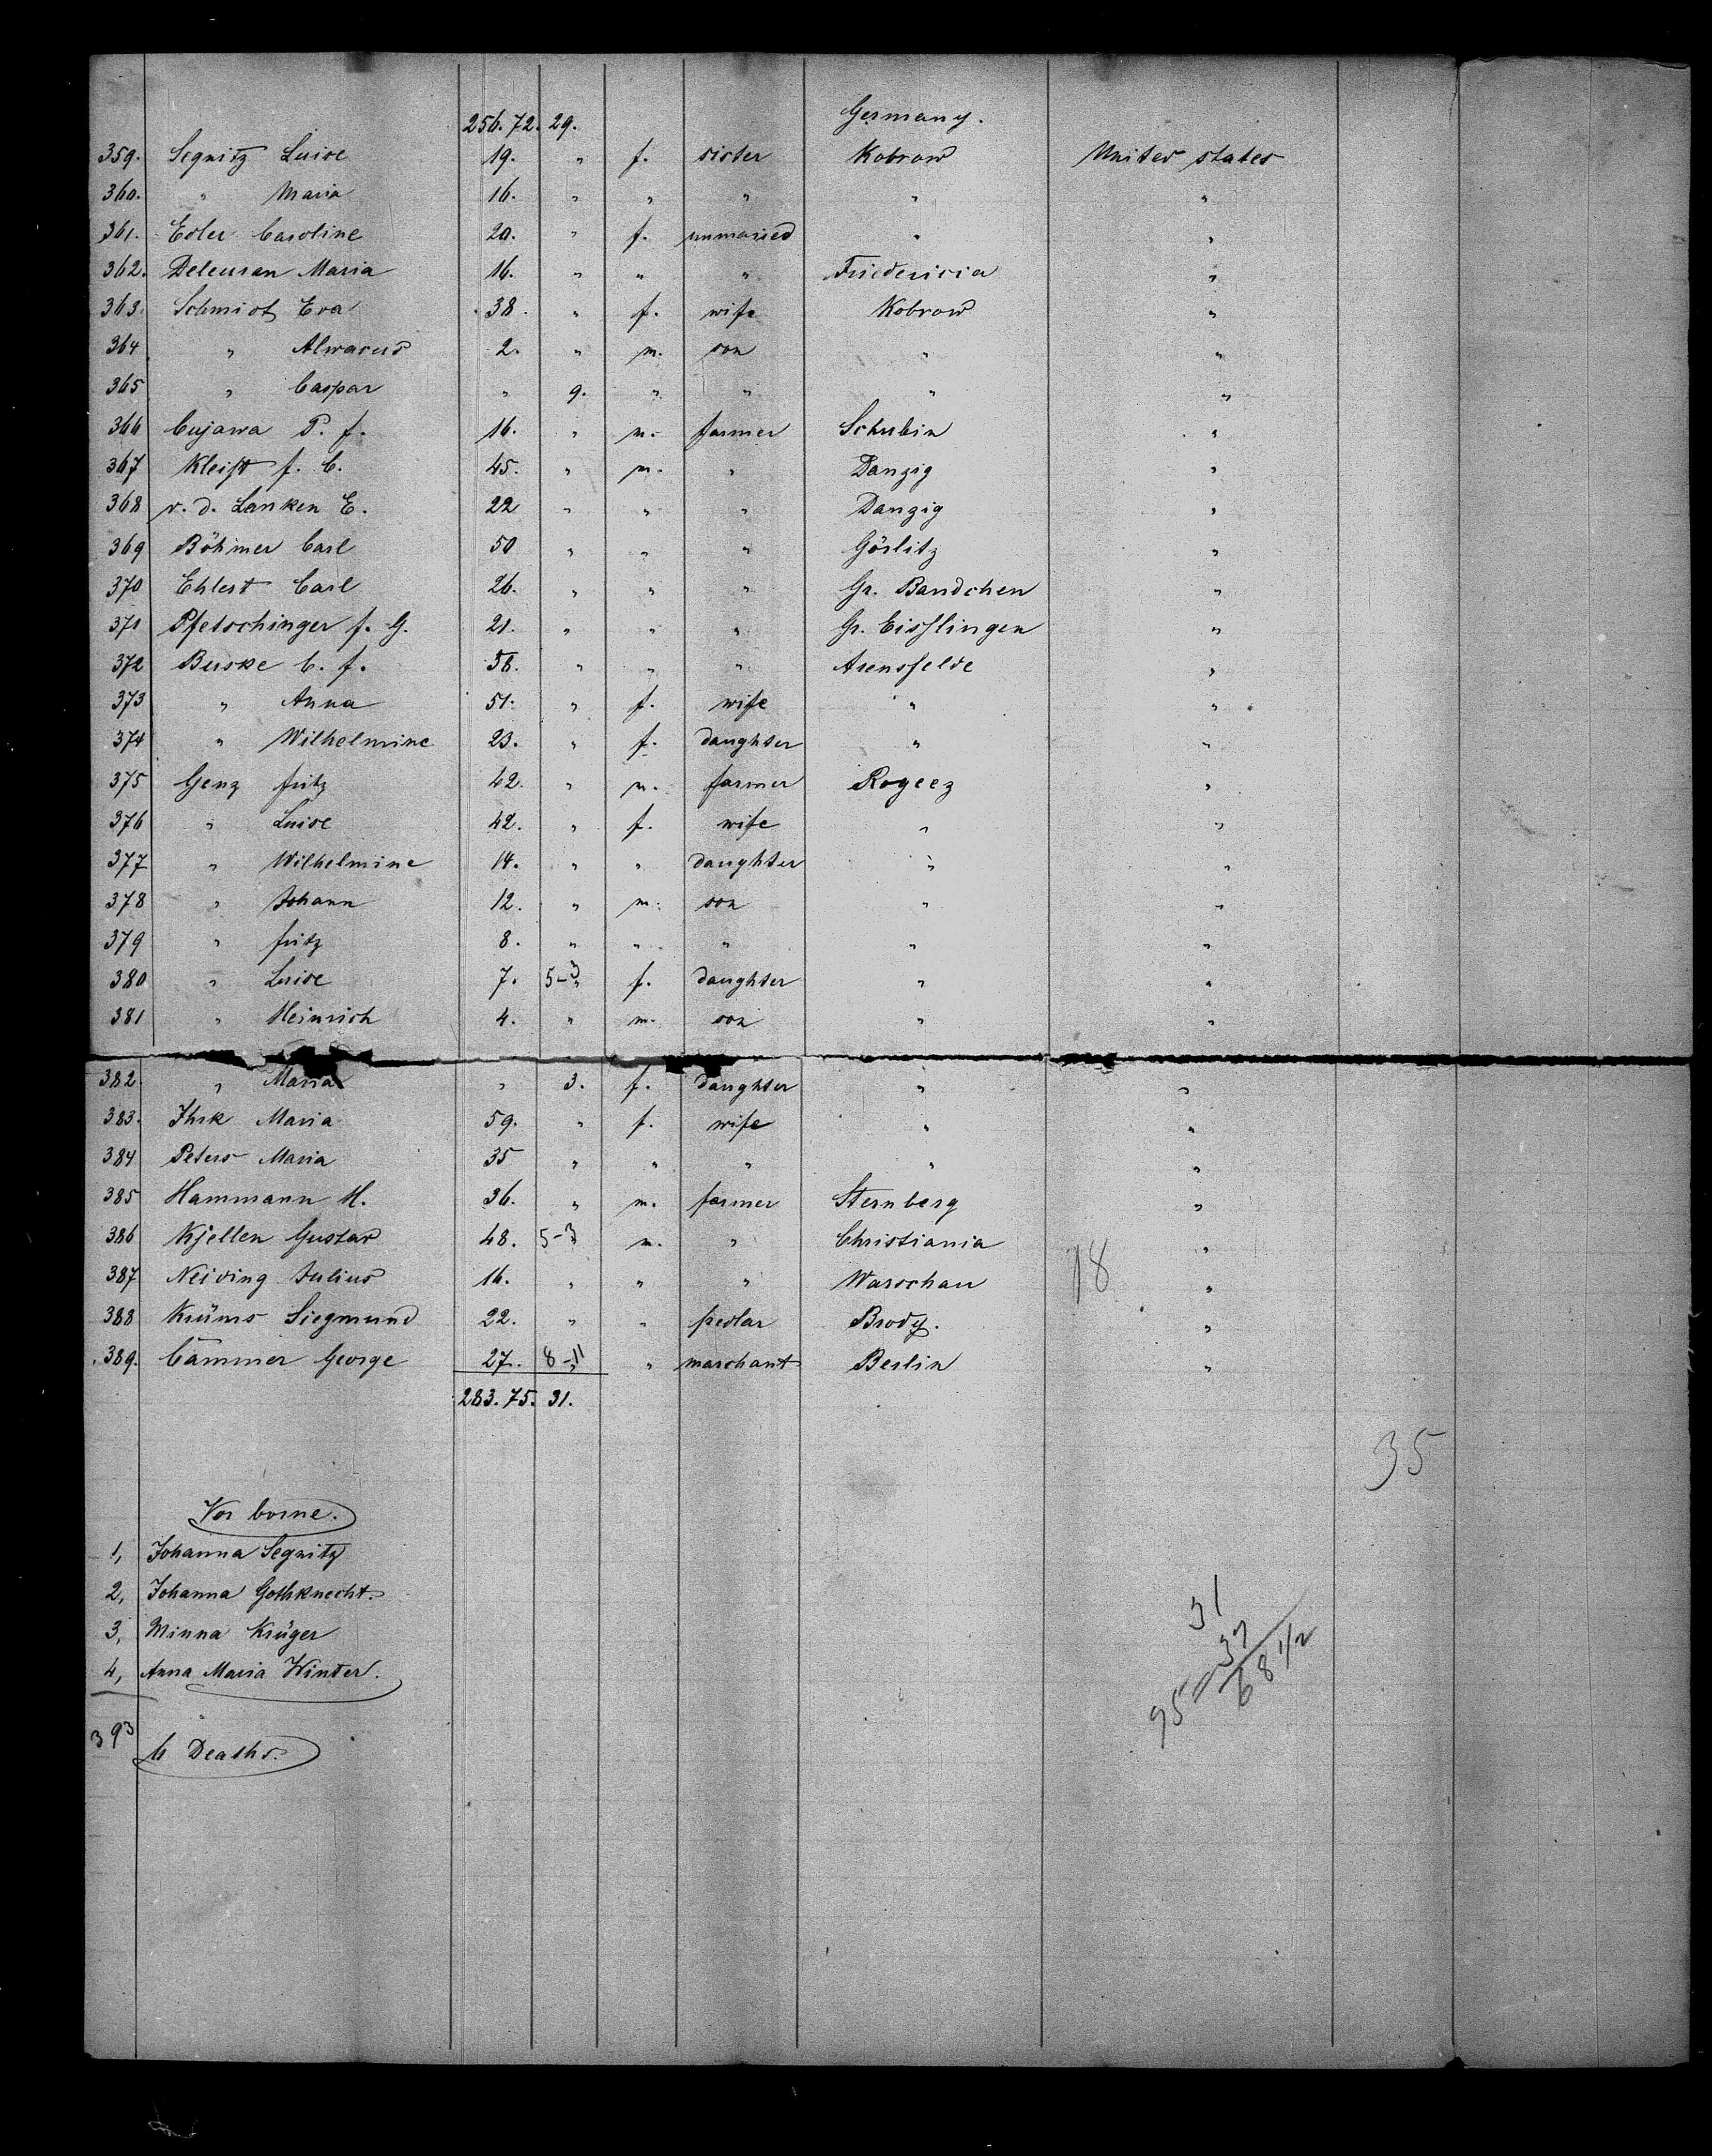 256. 72. 29. Germany.
359. Segnitz Luise 19. " f. sister Kobrow United states
360. " Maria 16. " " " " "
361. Esler Caroline 20. " f. unmarried " "
362. Deleuran Maria 16. " " " Friedericia "
363. Schmidt Eva 38. " f. wife Kobrow "
364 " 2. " m. son " "
365 " Caspar " 9. " " " "
366 Cujawa P. f. 16. " m. farmer Schubin "
367 Kleist f. C. 45. " m. " Danzig "
368 v. d. Lanken E. 22 " " " Danzig "
369 Böhmer Carl 50 " " " Görlitz "
370 Ehlert Carl 26. " " " Gr. Bandchen "
371 Pfetschinger f. G. 21. " " " Gr. Eisslingen "
372 Buske C. f. 56. " " " Arensfelde "
373 " Anna 51. " f. wife " "
374 " Wilhelmine 23. " f. daughter " "
375 Genz fritz 42. " m. farmer Rogeez "
376 " Luise 42. " f. wife " "
377 " Wilhelmine 14. " " daughter " "
378 " Johann 12. " m. son " "
379 " fritz 8. " " " " "
380 " Luise 7. 5-3 f. daughter " "
381 " Heinrich 4. " m. son " "
382. " Maria " 3. f. daughter " "
383. Ihrk Maria 59. " f. wife " "
384 Peters Maria 35 " " " " "
385 Hammann H. 36. " m. farmer Sternberg "
386 Kjellen Gustav 48. 5-3 m. " Christiania "
387 Neiding Julius 16. " " " Warschau 18 "
388 Krüms Siegmund 22. " " pedlar Brody. "
389. Cämmer George 27. 8-11 " marchant Berlin "
283. 75. 31.
35
Vor borne.
1, Johanna Segnitz
2, Johanna Gothknecht.
3, Minna Krüger
4, Anna Maria Winter.
31
37
95 68 1/2
393
6 Deaths.